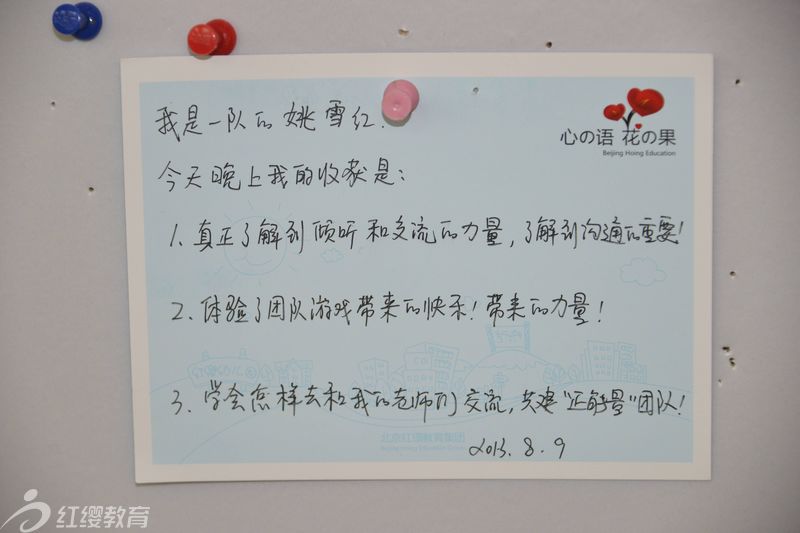 心の语 花の果
Beijing Hoing Education
我是一队的姚雪红.
今天晚上我的收获是：
1、真正了解到倾听和交流的力量，了解到沟通的重要！
2、体验了团队游戏带来的快乐！带来的力量！
3、学会怎样去和我的老师们交流，共建"正能量"团队！
北京红缨教育集团
Beijing Hoing Education Group
2013.8.9
红缨教育